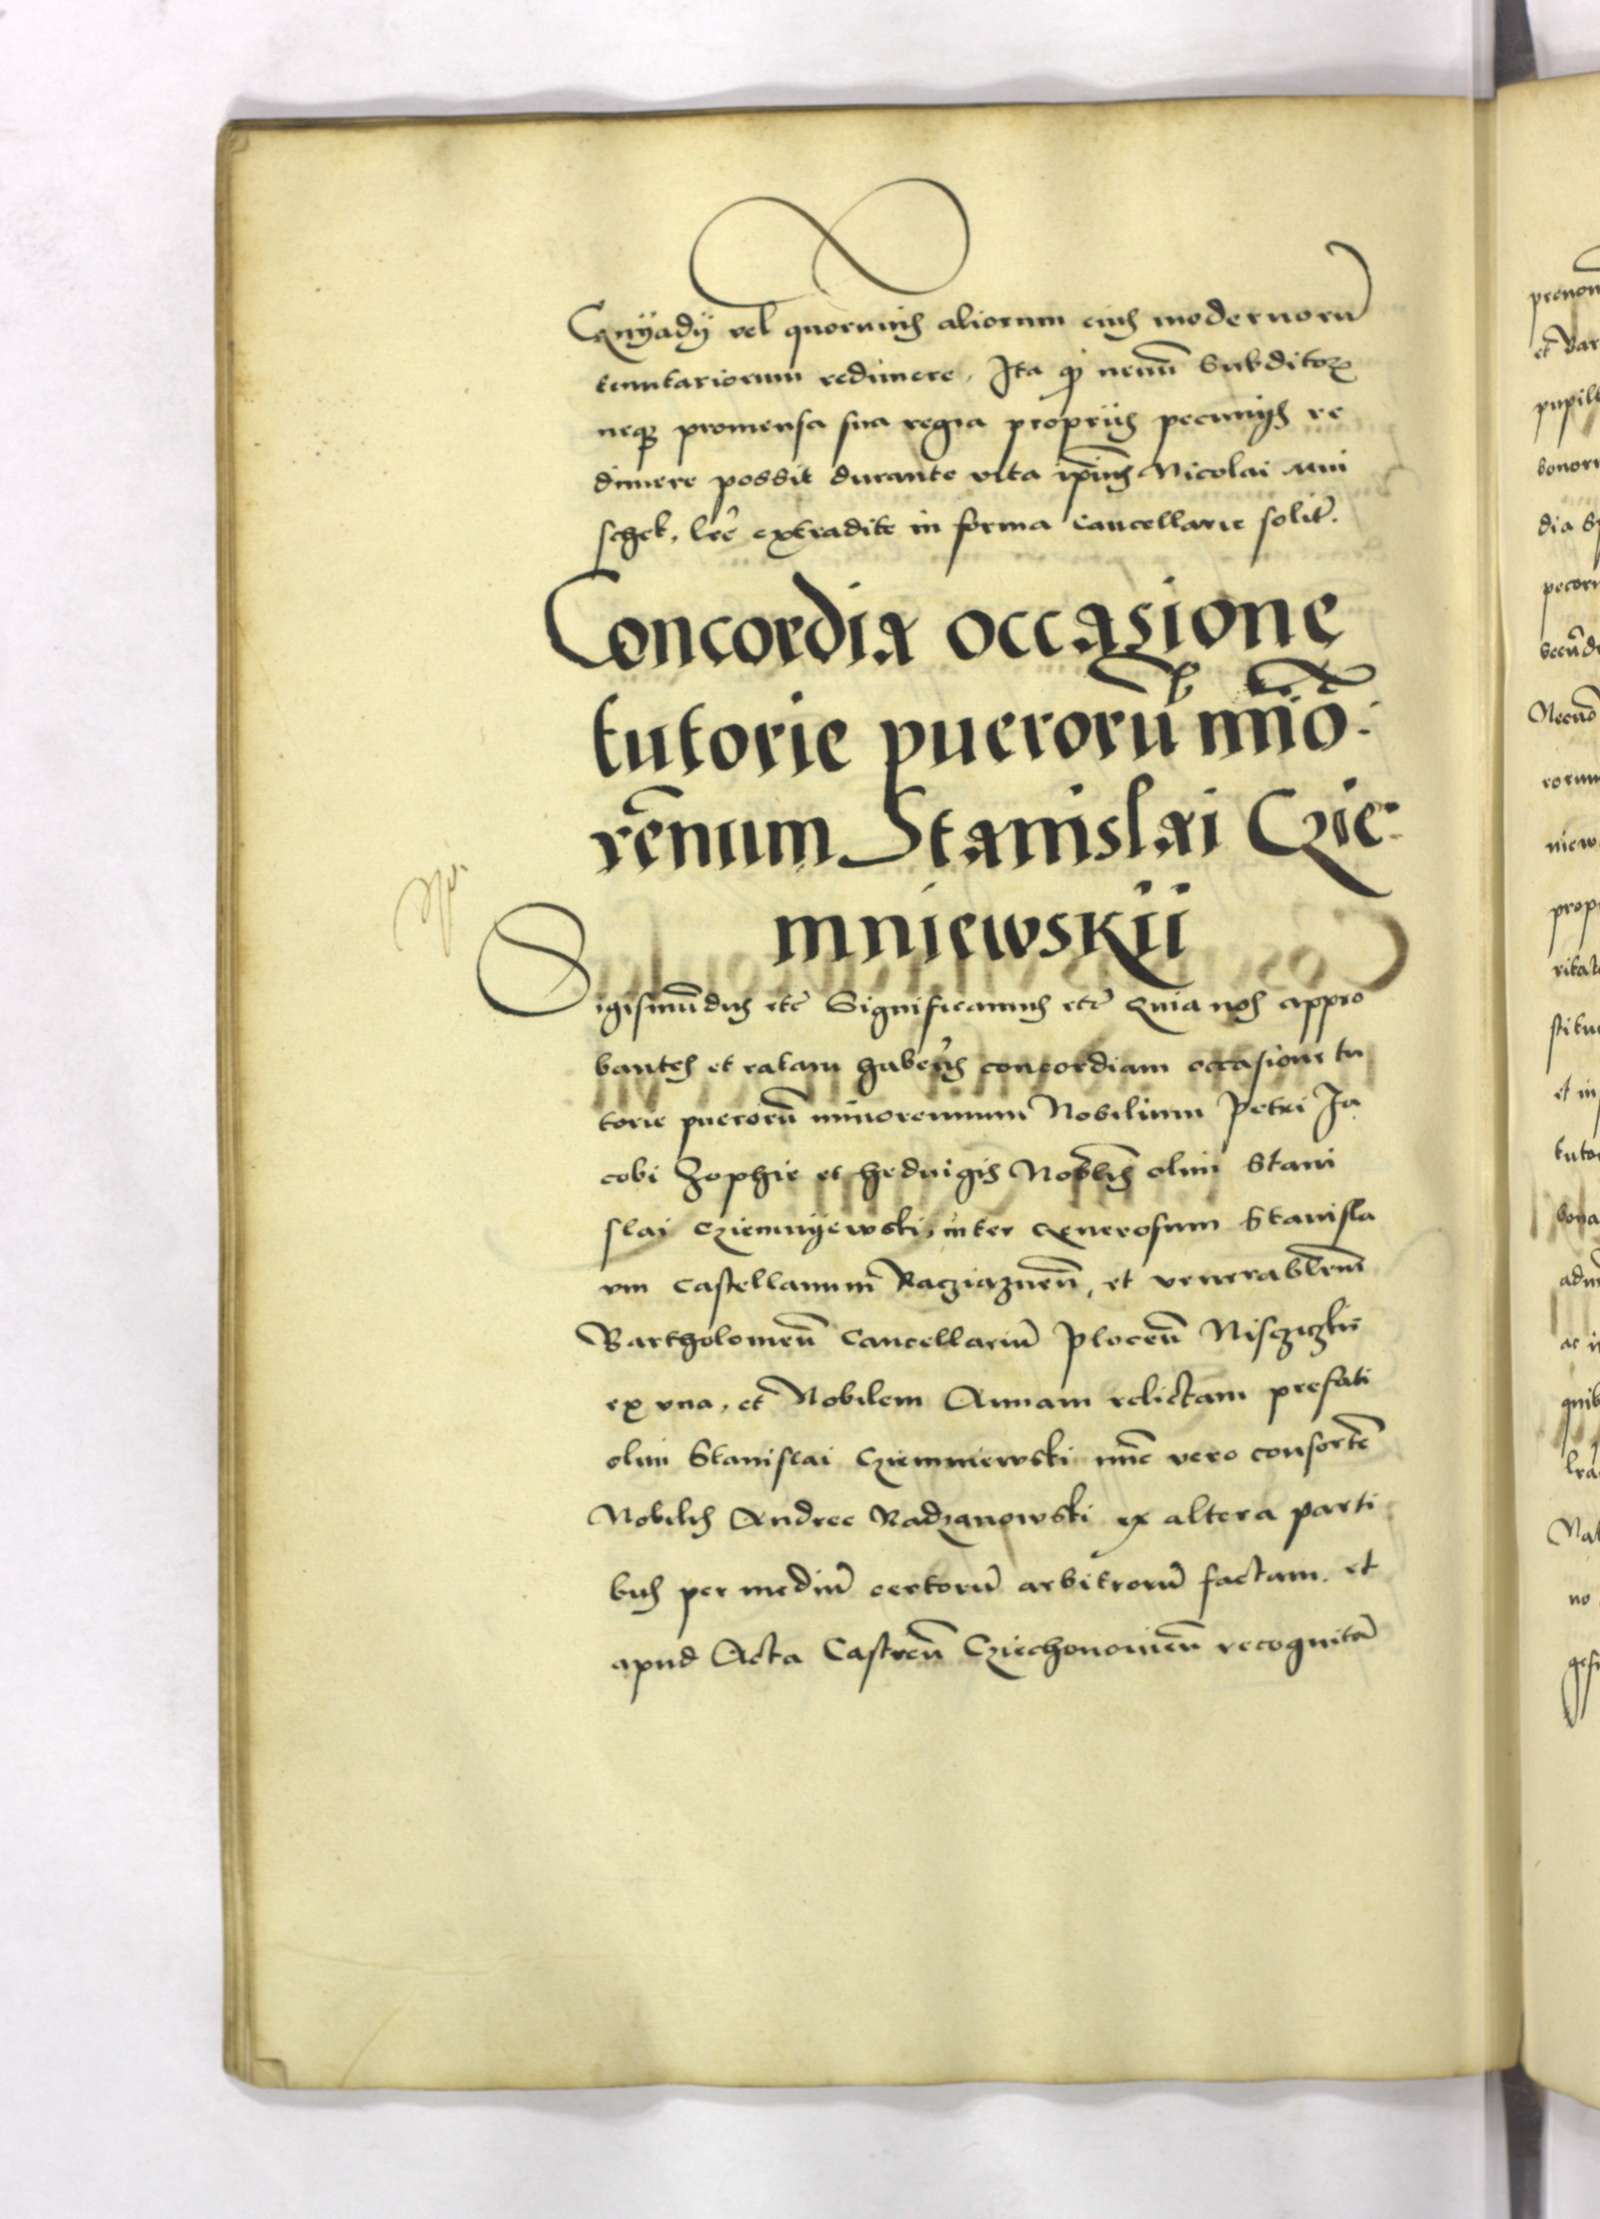 Gnyady vel quorumvis aliorum eius modernorū
tenutariorum redimere, Ita qȝ nemū Subditoꝝ
neqȝ promensa sua regia propriis pecunijs re
dimere possit durante vita ipīus Nicolai Mni
schek, lr̄e extradite in forma Cancellarie solit̄.
Concordia occasione
tutorie puerorū mīo:
rēnum Stanislai Czie:
mniewskii
Sigismūdus etc̄ Significamus etc̄ Quia nos appro
bantes et ratam habeñs concordiam occasione tu
torie puerorū minorennum Nobilium Petri Ja
cobi Zophie et Hedvigis Nob̄lis olim Stani
slai Cziemnyewski, inter Generosum Stanisla
vm Castellanum Raczyaznēn, et venerabil̄em
Bartholomeū Cancellariū Plocēn Nisczyczki
ex vna, et Nobilem Annam relictam prefati
olim Stanislai Cziemniewski nūc vero consortē
Nobilis Andree Radzanowski ex altera parti
bus per mediū certorū arbitrorū factam, et
apud Acta Castreñ Cziechonowieñ recognitā
prenom
et var
pupill
bonoru
dia
pecoru
Necnō
rorum
niew
prop
ritat
stitu
et in
tuto
bona
ac i
quib
no